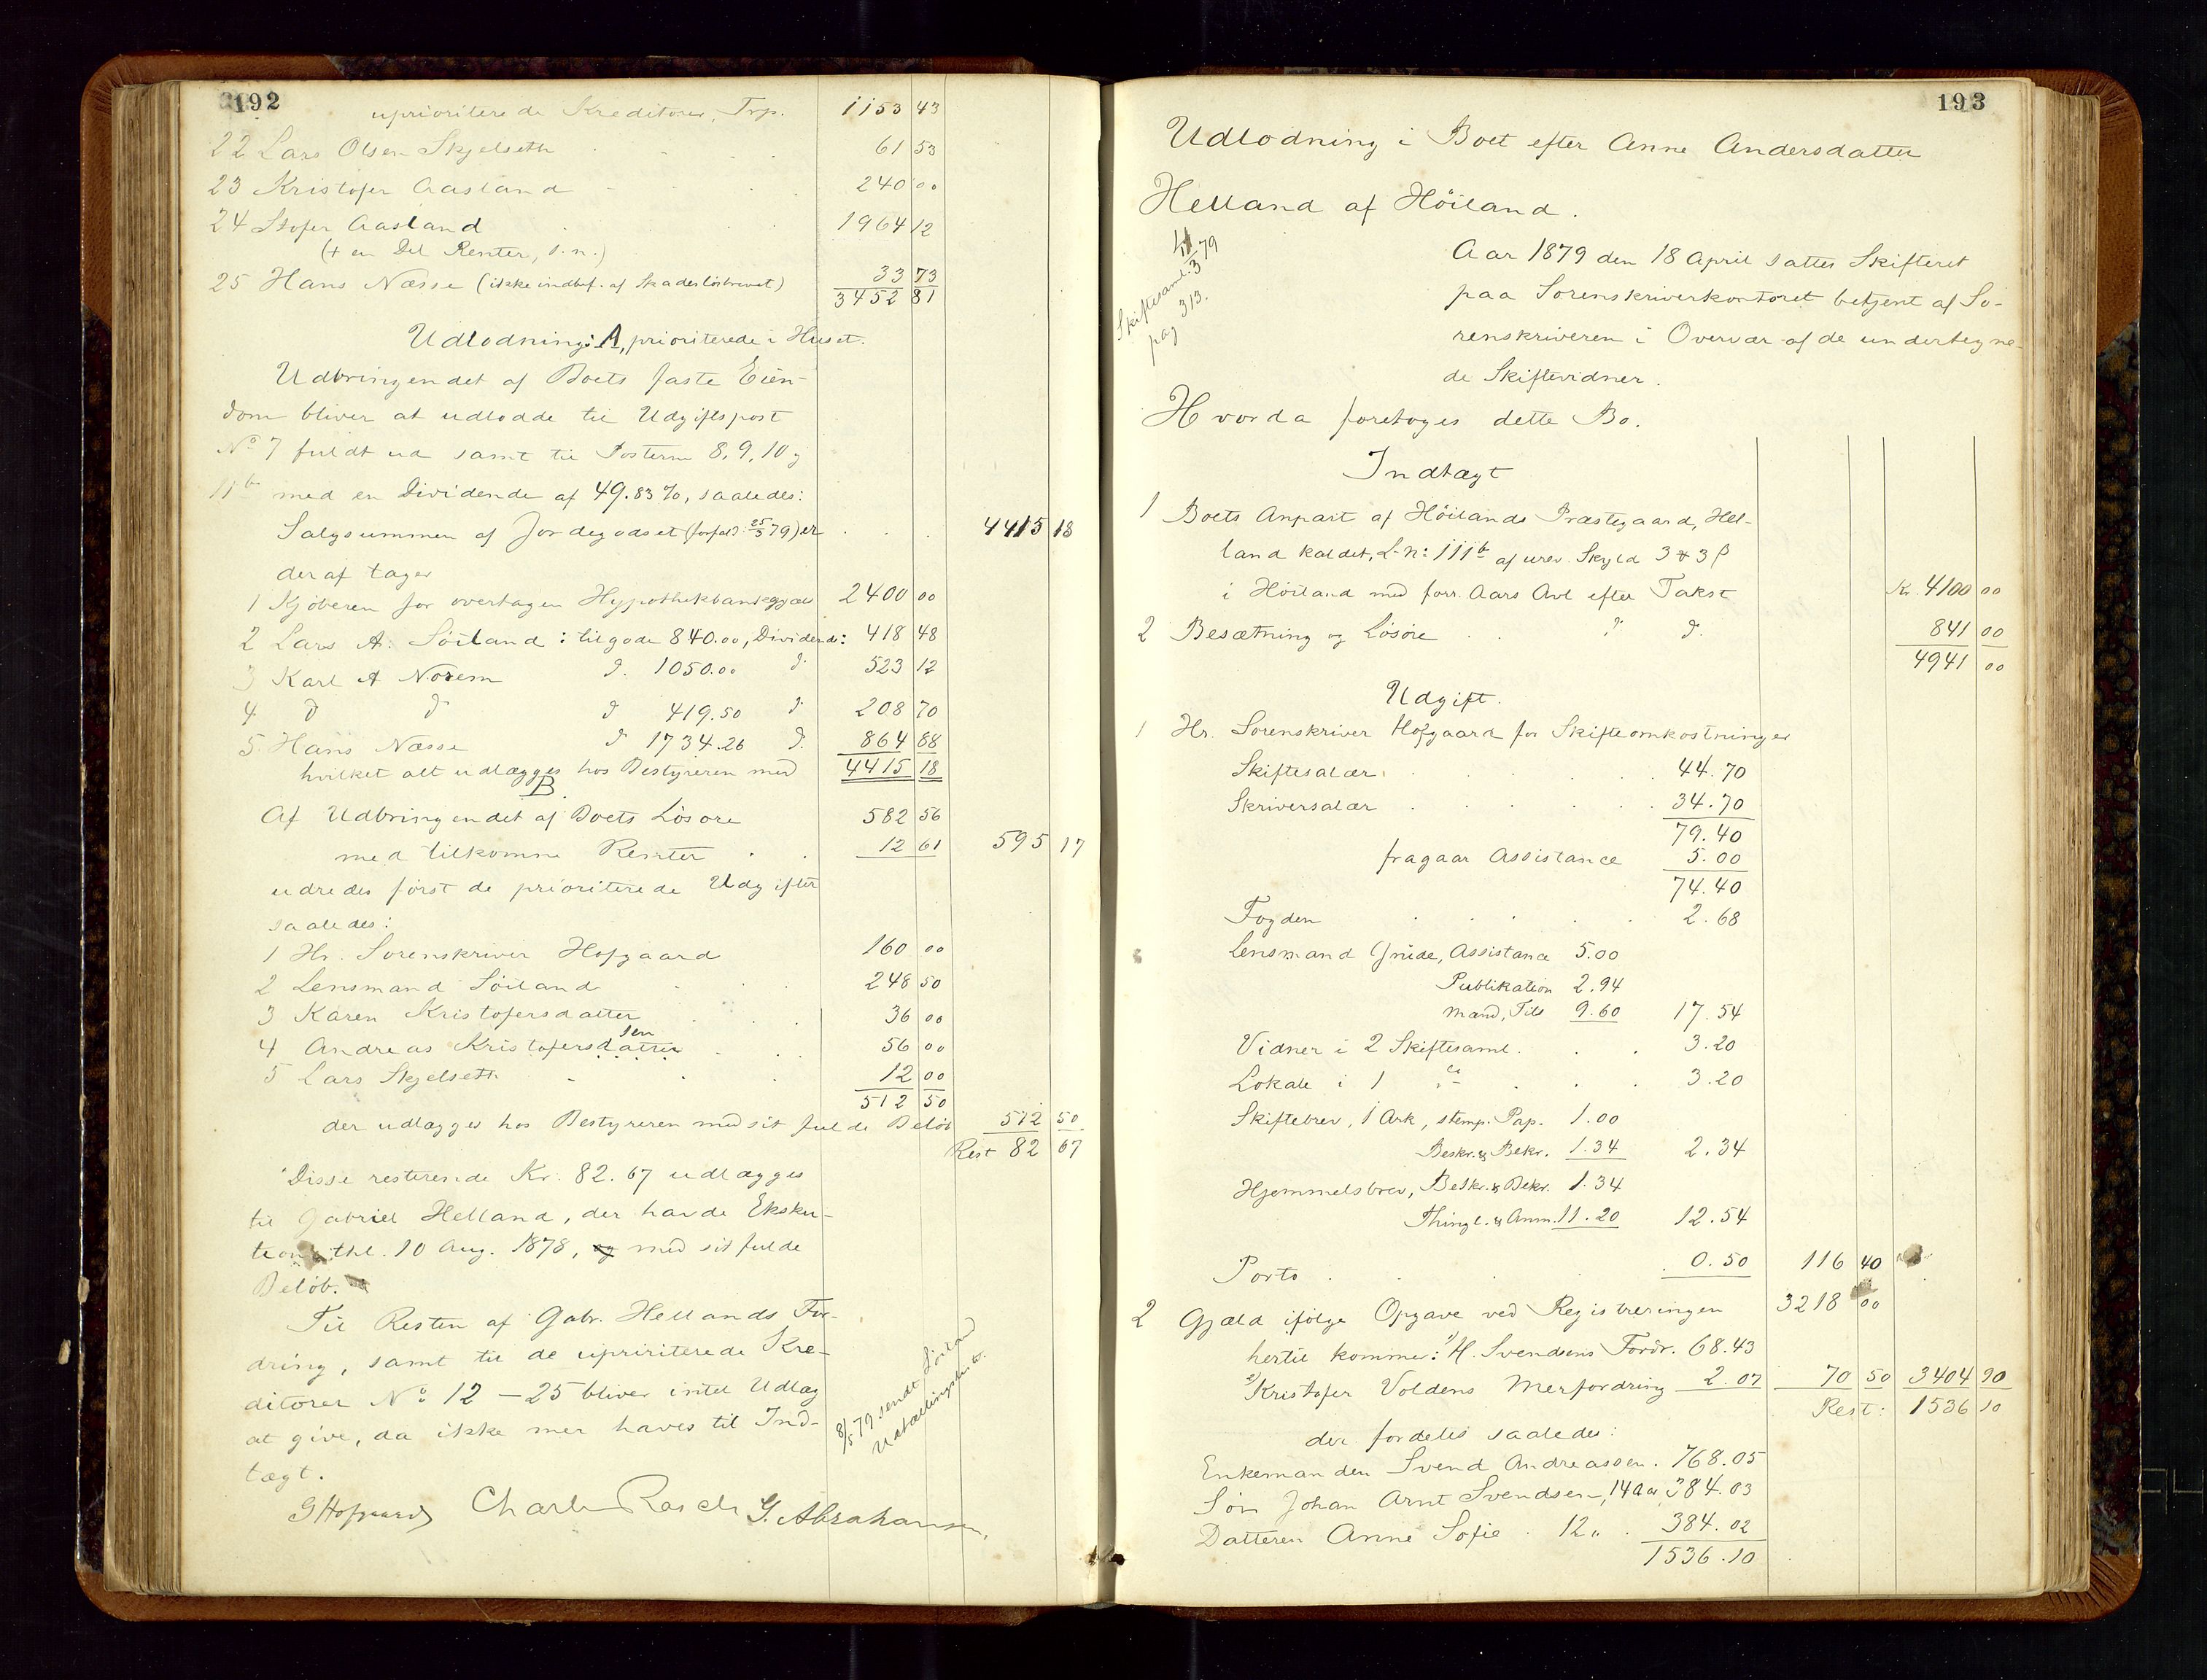 192
uprioriterede Kreditorer, Trp. 1153 43
22 Lars Olsen Skjelseth 61 53
23 Kristofer Aasland 240 00
24 Stofer Aasland 1964 12
(+ en Del Renter, s.n.)
25 Hans Næsse (ikke indbef. af Skadeslösbrevet) 33 73
3452 81
Udlodning: A, prioriterede i Huset.
Udbringendet af Boets faste Eien-
dom bliver at udlodde til Udgiftspost
No 7 fuldt ud samt til Posterne 8, 9, 10 og
11b med en Dividende af 49.83 %, saaledes:
Salgsummen af Jordegodset (forfald. 25/3 79) er 4415 18
deraf tager
1 Kjøberen for overtagen Hypothekbankgjæld 2400 00
2 Lars A. Söiland : tilgode 840.00, Dividende: 418 48
3 Karl A Norem d. 1050.00 d. 523 12
4 d d d 419.50 d 208 70
5 Hans Næsse d 1734.26 d. 864 88
hvilket alt udlægges hos Bestyreren med 4415 18
B.
Af Udbringendet af Boets Lösöre 582 56
med tilkomne Renter 12 61 595 17
udredes först de prioriterede Udgifter
saaledes:
1 Hr. Sorenskriver Hofgaard 160 00
2 Lensmand Söiland 248 50
3 Karen Kristofersdatter 36 00
4 Andreas Kristofersdatter sen 56 00
5 Lars Skjelseth 12 00
512 50
der udlægges hos Bestyreren med sit fulde Belöb 512 50
Rest 82 67
Disse resterende Kr. 82.67 udlægges
til Gabriel Helland, der havde Eksku-
tion thl. 10 Aug. 1878, og med sit fulde
Belöb.
Til Resten af Gabr. Hellands For-
dring, samt til de upririterede Kre-
ditorer No 12 – 25 bliver intet Udlæg
at give, da ikke mer haves til Ind-
tægt.
8/5 79 sendt Söiland
Udtællingsliste.
GHofgaard Charles Rasch G. Abrahamsen.
193
Udlodning i Boet efter Anne Andersdatter
Helland af Höiland.
Skiftesaml. 4/3 79
pag 313.
Aar 1879 den 18 April sattes Skifteret
paa Sorenskriverkontoret betjent af So-
renskriveren i Overvær af de undertegne-
de Skiftevidner.
Hvorda foretoges dette Bo.
Indtægt
1 Boets Anpart af Höilands Præstegaard, Hel-
land kaldet, L-n: 111b af urev. Skyld 3 & 3 β
i Höiland med forr. Aars Avl efter Takst Kr. 4100 00
2 Besætning og Lösöre d. 841 00
4941 00
Udgift.
1 Hr. Sorenskriver Hofgaard for Skifteomkostninger
Skiftesalær 44.70
Skriversalær 34.70
79.40
fragaar Assistance 5.00
74.40
Fogden 2.68
Lensmand Gride, Assistance 5.00
Publikation 2.94
9.60 17.54
Vidner i 2 Skiftesaml. 3.20
Lokale i 1 3.20
Skiftebrev, 1 Ark, stemp. Pap. 1.00
Beskr. & Bekr. 1.34 2.34
Hjemmelsbrev, Beskr. & Bekr. 1.34
Thingl. & Anm. 11.20 12.54
Porto 0.50 116 40
2 Gjæld ifölge Opgave ved Registreringen 3218 00
hertil kommer: 1) H. Svendsens Fordr. 68.43
2) Kristofer Voldens Merfordring 2.07 70 50 3404 90
Rest: 1536 10
der fordeles saaledes:
Enkemanden Svend Andreassen. 768.05
Sön Johan Arnt Svendsen, 14 Aar 384.03
Datteren Anne Sofie 12 „ 384.02
1536.10